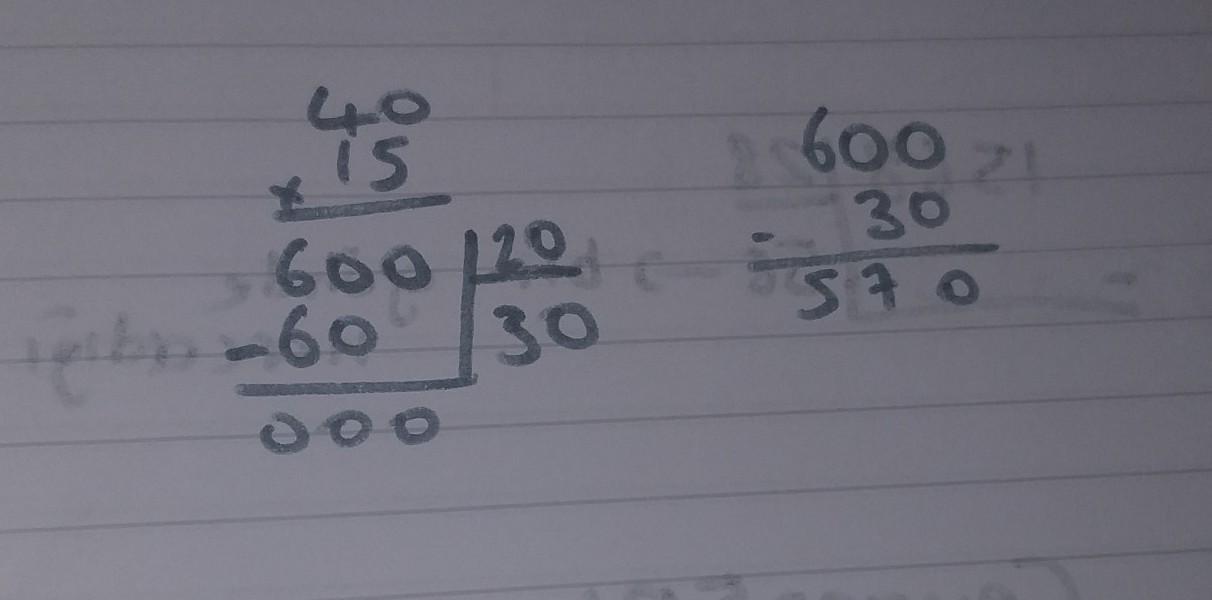 40
15
×
600 20
-60 30
000
600
30
-
570